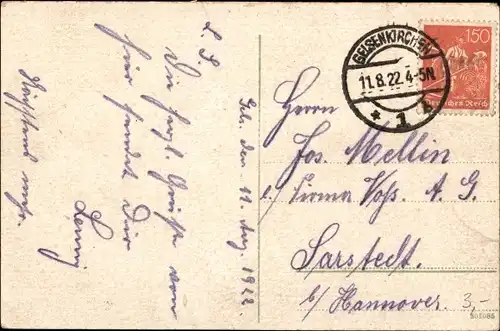 Gel. den 11. Aug. 1922.
L. S.
Die herzl. Grüße von
hier sendet Dir
Lenny
GELSENKIRCHEN
11.8.22. 4-5N
* 1 k
150
Deutsches Reich
Herrn
Jos. Mellin
c/ Firma Voss. A. G.
Sarstedt.
b/ Hannover.
3,-